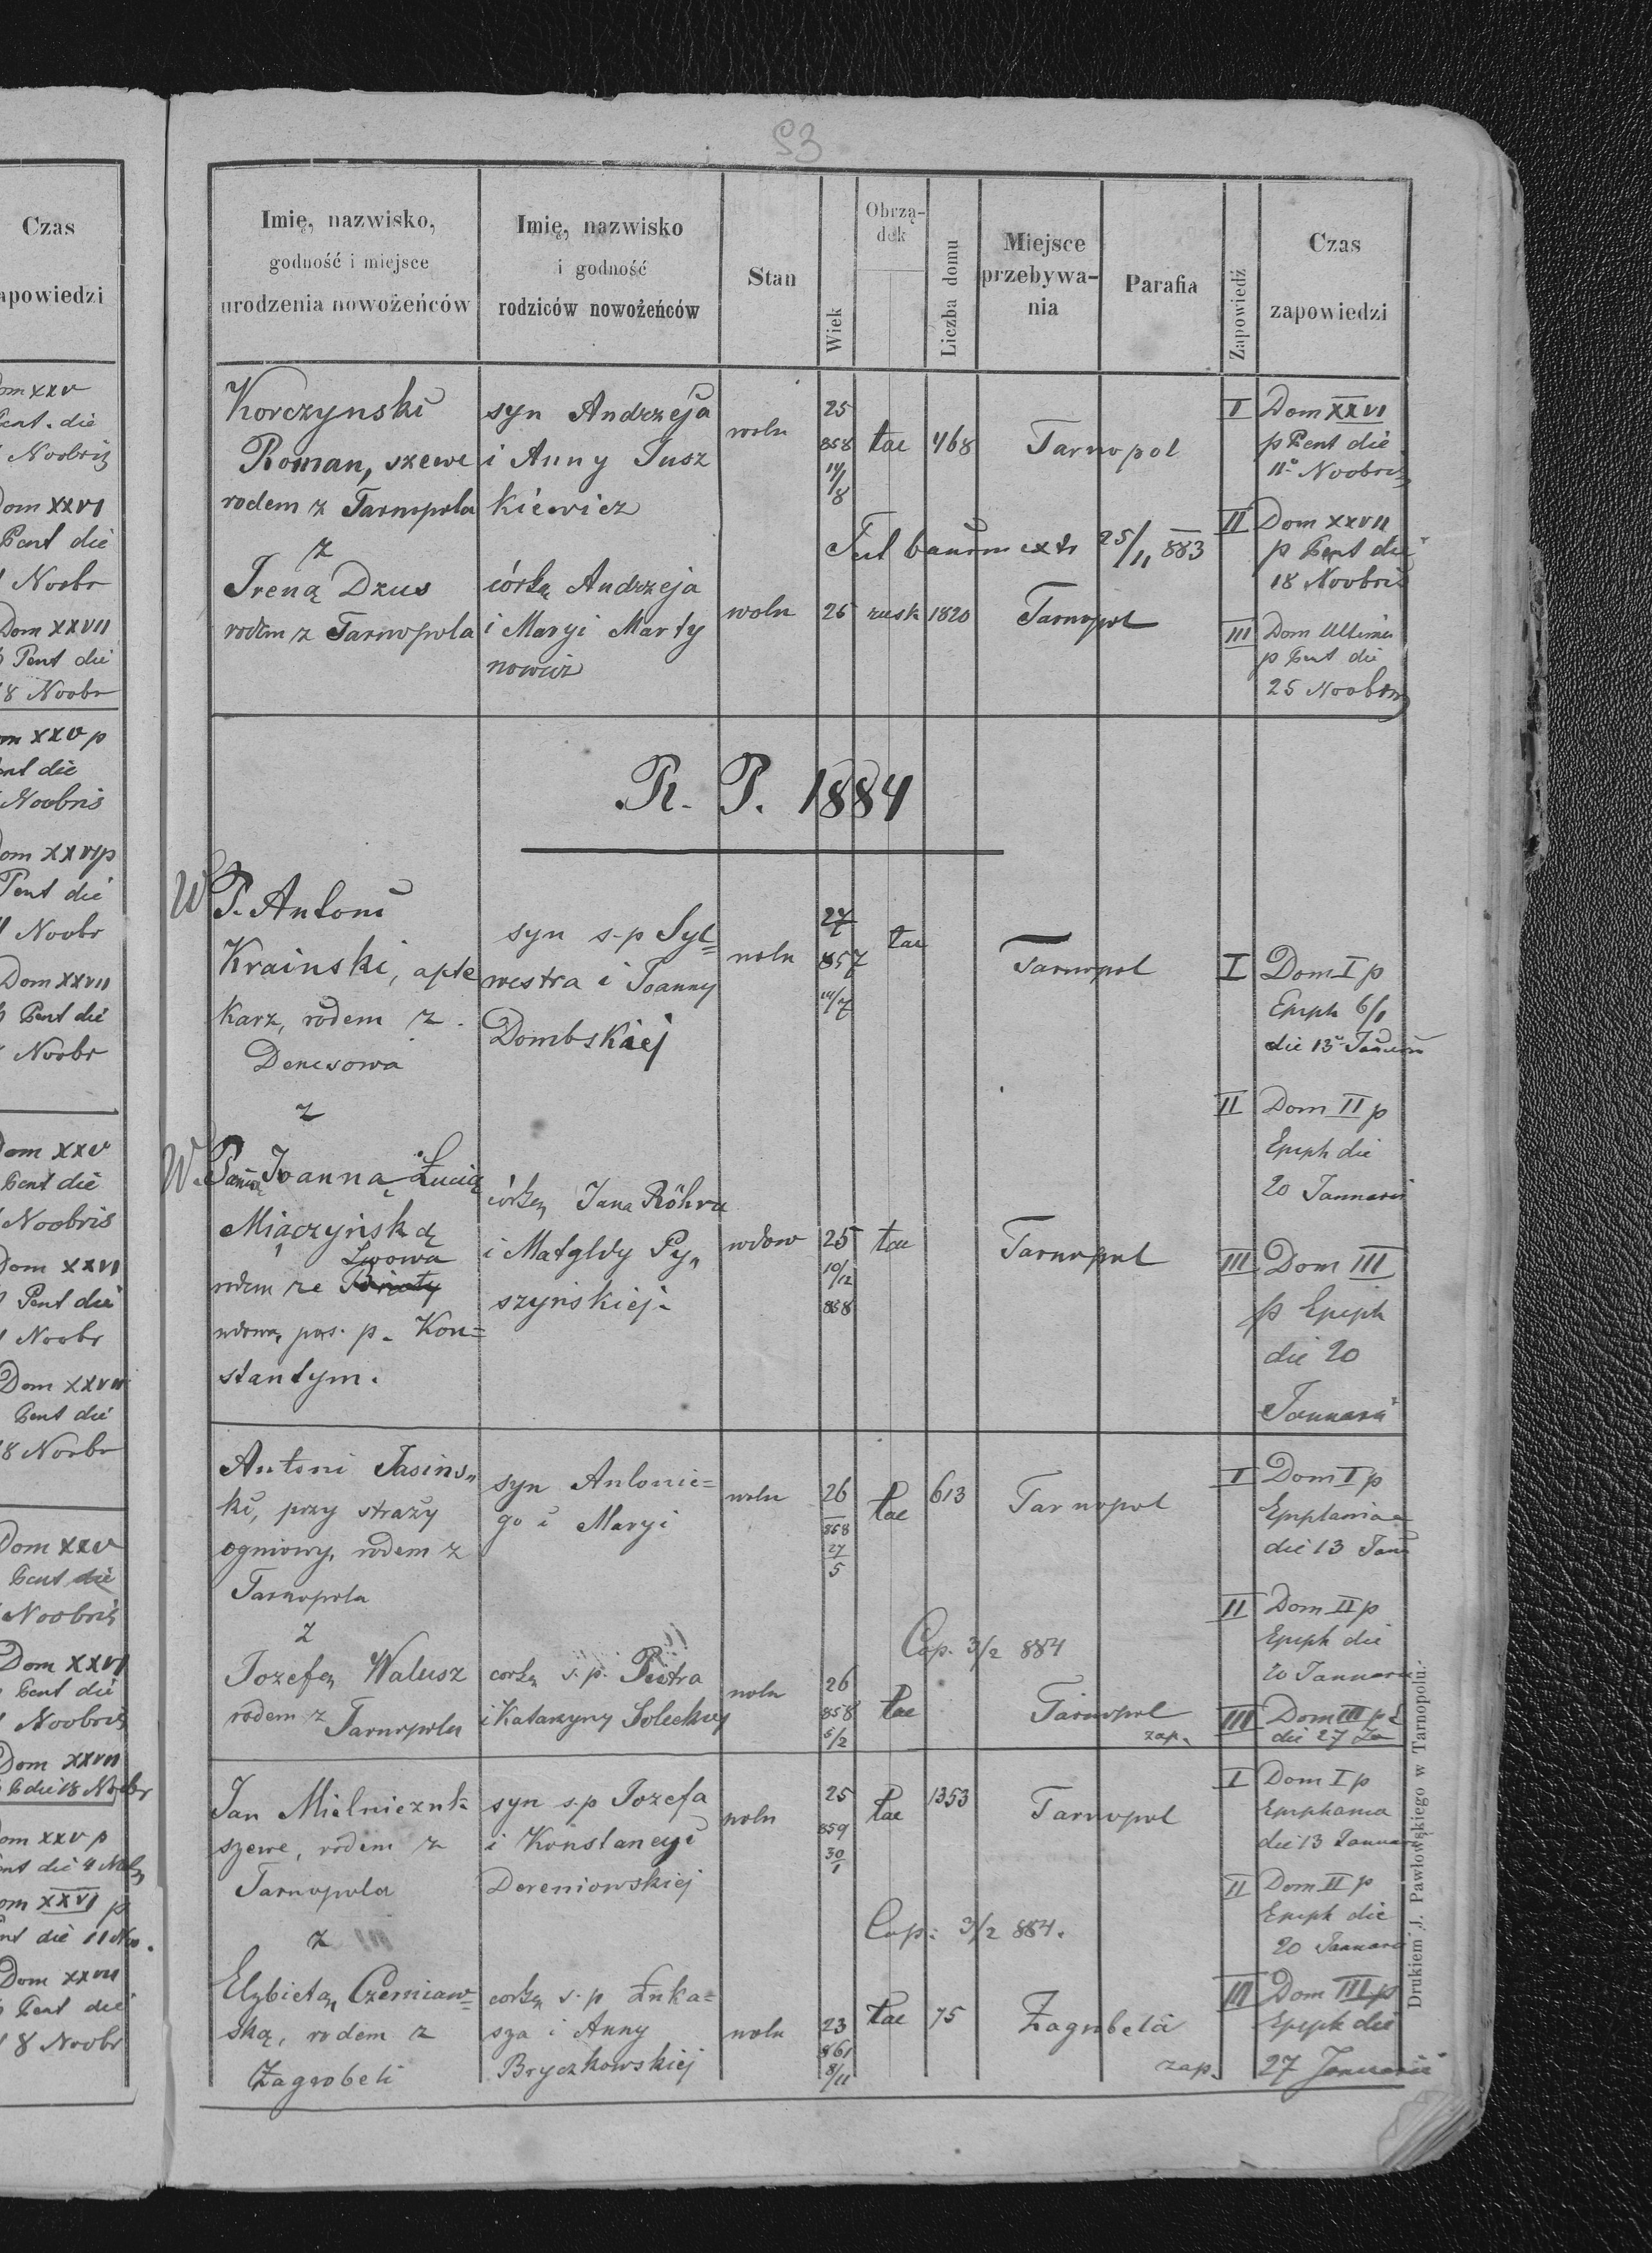 53
Czas
zapowiedzi
Dom XXV
Pent. die
Noobris
Dom XXVI
Pent die
Noobr
Dom XXVII
p Pent die
18 Noobr
Dom XXV p
Pent die
Noobris
Dom XXVI p
Pent die
11 Noobr
Dom XXVII
p Pent die
Noobr
Dom XXV
Pent die
Noobris
Dom XXVI
Pent die
11 Noobr
Dom XXVII
Pent die
18 Noobr
Dom XXV
Pent die
Noobris
Dom XXVI
Pent die
Noobris
Dom XXVII
p P die 18 Noobr
Dom XXV p
Pent die 4
Dom XXVI p
Pent die 11 No.
Dom XXVII
p Pent die
18 Noobr
Imię, nazwisko,
godność i miejsce
urodzenia nowożeńców
Imię, nazwisko
i godność
rodziców nowożeńców
Stan
Wiek
Obrzą-
dek
Liczba domu
Miejsce
przebywa-
nia
Parafia
Zapowiedź
Czas
zapowiedzi
Korczynski
Roman, szewc
rodem z Tarnopola
z
Ireną Dzus
rodem z Tarnopola
syn Andrzeja
i Anny Jusz
kiewicz
córką Andrzeja
i Maryi Marty
nowicz
woln
25
858
14/8
łac
468
Tarnopol
25/11 883
woln
26
rusk
1820
Tarnopol
I Dom XXVI
p Pent die
11º Noobris
II Dom XXVII
p Pent die
18 Noobris
III Dom Ultima
p Pent die
25 Noobris
R. P. 1884
W P. Antoni
Krainski, apte
karz, rodem z
Denisowa
z
W. Panią Joanną Łucią
Miączyńską
Lwowa
rodem ze
wdową po s. p. Kon=
stantym.
syn s.p Syl=
westra i Joanny
Dombskiej
córką Jana Röhra
i Matyldy Py„
szyńskiej.
woln
27
857
14/7
łac
Tarnopol
wdow
25
10/12
858
łac
Tarnopol
I Dom I p
Epiph 6/1
die 13
II Dom II p
Epiph die
20 Januarii
III Dom III
p Epiph
die 20
Januarii
Antoni Jasińs„
ki, przy straży
ogniowy, rodem z
Tarnopola
z
Jozefą Walusz
rodem z Tarnopola
syn Antonie=
go i Maryi
corką s. p. Piotra
i Katarzyny Soleckiej
woln
26
858
27
5
łac
613
Tarnopol
Cop. 3/2 884
woln
26
858
5/2
łac
Tarnopol
zap.
I Dom I p
Epiphania
die 13 Janu
II Dom II p
Epiph die
20 Januarii
III Dom III p E
die 27 Ja
Jan Mielniczuk
szewc, rodem z
Tarnopola
z
Elzbietą Czerniaw=
ską, rodem z
Zagrobeli
syn s.p Jozefa
i Konstancyi
Dereniowskiej
corką s. p Łuka=
sza i Anny
Bryczkowskiej
woln
25
859
30
1
łac
1353
Tarnopol
Cop: 3/2 884.
woln
23
861
8/11
łac
75
Zagrobela
zap.
I Dom I p
Epiphania
die 13 Januarii
II Dom II p
Epiph die
20 Januarii
III Dom III p
Epiph die
27 Januarii
Drukiem J. Pawłowskiego w Tarnopolu.